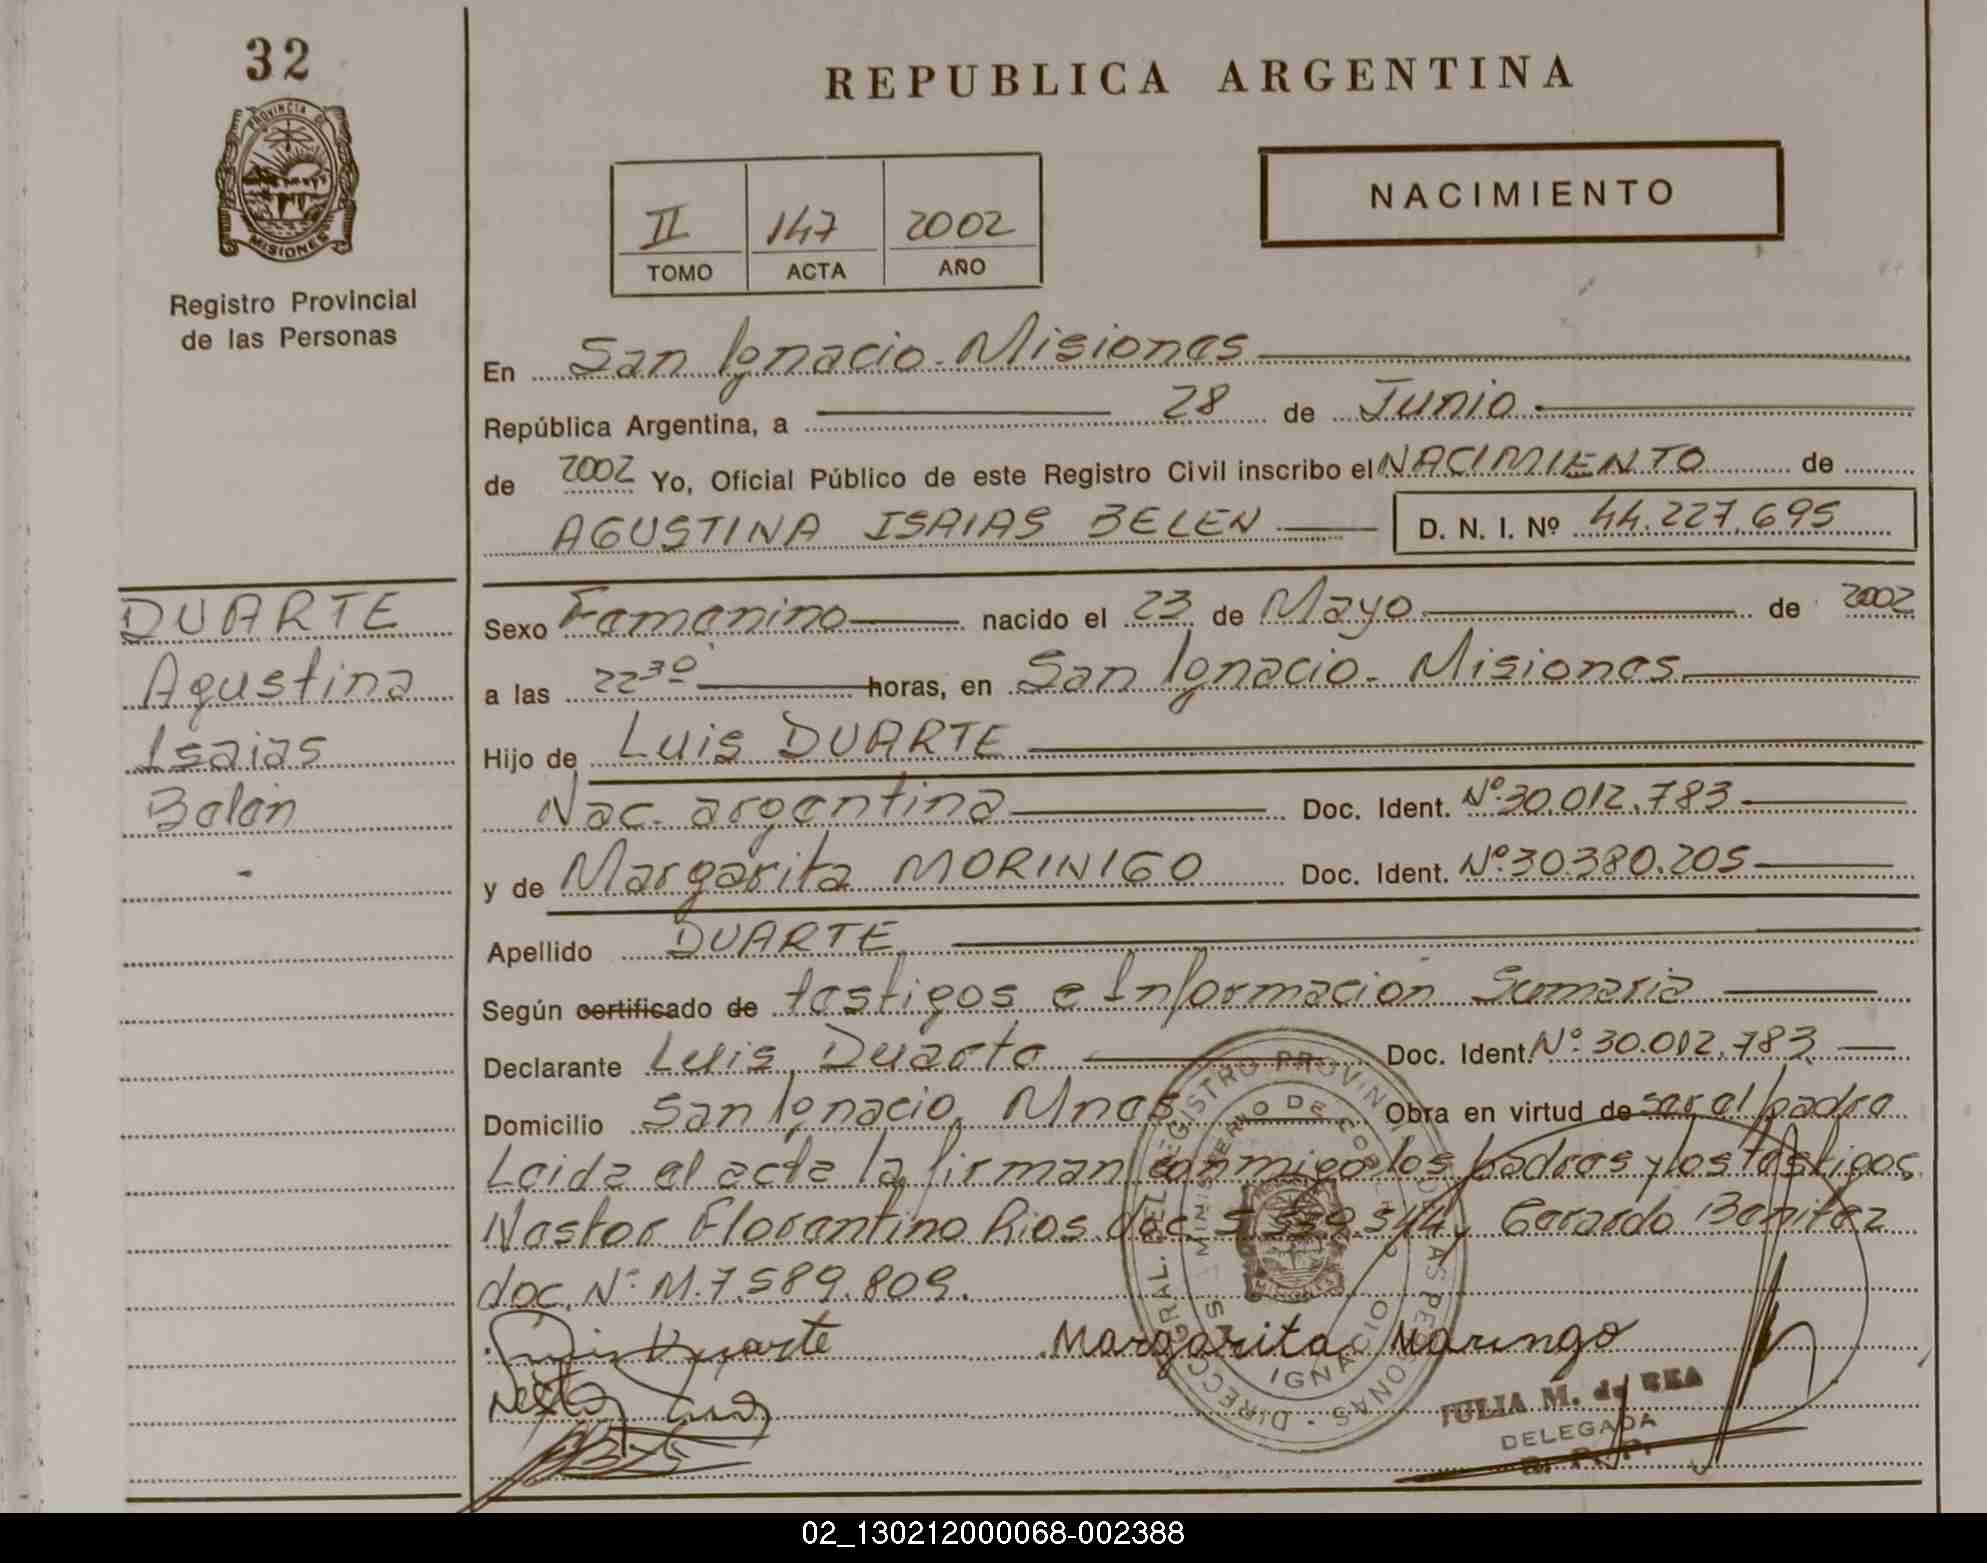 32
PROVINCIA DE
MISIONES
Registro Provincial
de las Personas
REPUBLICA ARGENTINA
II 147 2002
TOMO ACTA AÑO
NACIMIENTO
En San Ignacio. Misiones
República Argentina, a 28 de Junio
de 2002 Yo, Oficial Público de este Registro Civil inscribo el NACIMIENTO de
AGUSTINA ISAIAS BELEN D. N. I. Nº 44.227.695
DUARTE
Agustina
Isaias
Belén
Sexo Femenino nacido el 23 de Mayo de 2002
a las 22 30 horas, en San Ignacio. Misiones
Hijo de Luis DUARTE
Nac. argentina Doc. Ident. Nº 30.012.783
y de Margarita MORINIGO Doc. Ident. Nº 30380.205
Apellido DUARTE
Según certificado de testigos e Informacion Sumaria
Declarante Luis Duarte Doc. Ident. Nº 30.012.783
Domicilio San Ignacio, Mnes Obra en virtud de ser el padre
Leida el acta la firman conmigo los padres y los testigos
Nestor Florentino Rios doc y Gerardo Benitez
doc. Nº M.7.589.809.
Luis Duarte Margarita Maringo
Nestor
DIRECC. GRAL. DEL REGISTRO PROVINCIAL DE LAS PERSONAS
MINISTERIO DE GOBIERNO
S IGNACIO
JULIA M. de REA
DELEGADA
R. P. P.
02_130212000068-002388